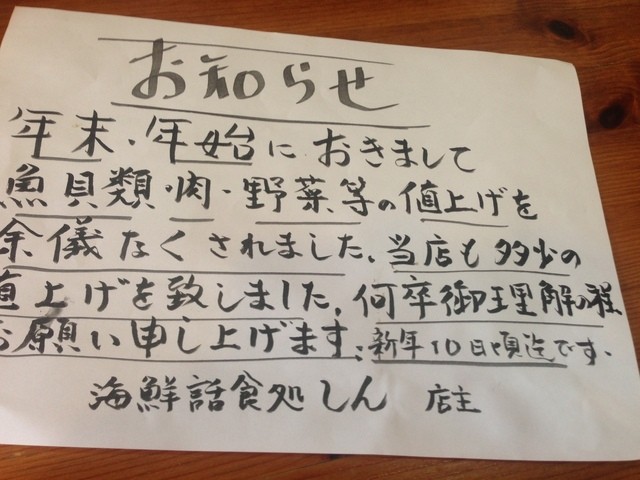 お知らせ
年末・年始におきまして
魚貝類・肉・野菜等の値上げを
余儀なくされました、当店も多少の
値上げを致しました、何卒御理解の程
お願い申し上げます、新年10日頃迄です、
海鮮話食処しん 店主